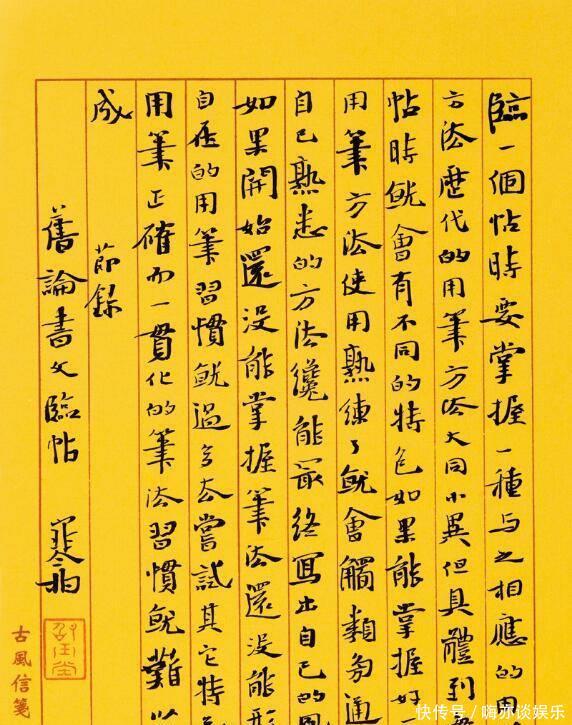 臨一個帖時要掌握一種与之相應的用
方法歷代的用筆方法大同小異但具體到
帖時就會有不同的特色如果能掌握好
用筆方法使用熟練了就會觸類旁通
自己熟悉的方法纔能最終寫出自己的
如果開始還沒能掌握筆法還沒能形
自的用筆習慣就過多去嘗試其它特
用筆正確而一貫化的筆法習慣就難以
成 節錄
舊論書文臨帖
古風信箋
快传号/嗨亦谈娱乐